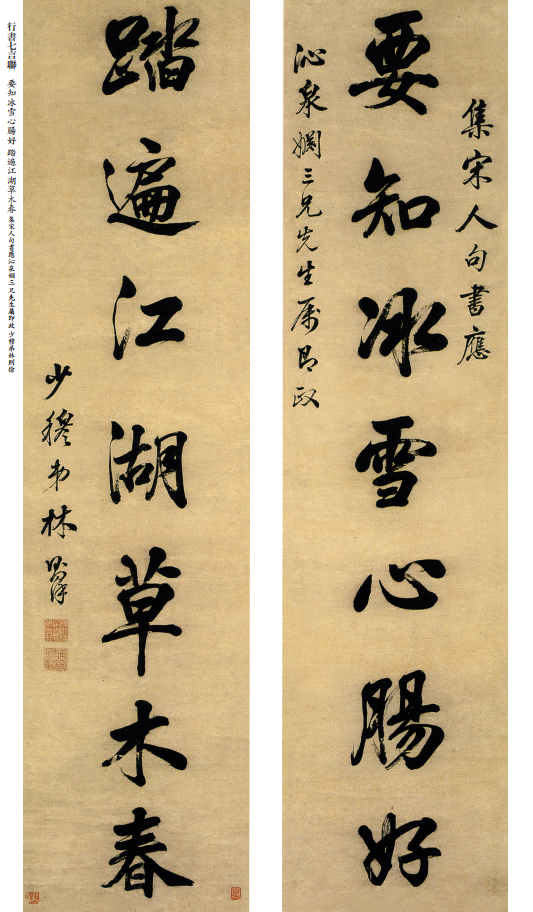 集宋人句書應
要知冰雪心腸好
沁泉姻三兄先生属即政
踏遍江湖草木春
少穆弟林則徐
行書七言聯　要知冰雪心腸好 踏遍江湖草木春 集宋人句書應沁泉姻三兄先生屬即政 少穆弟林則徐